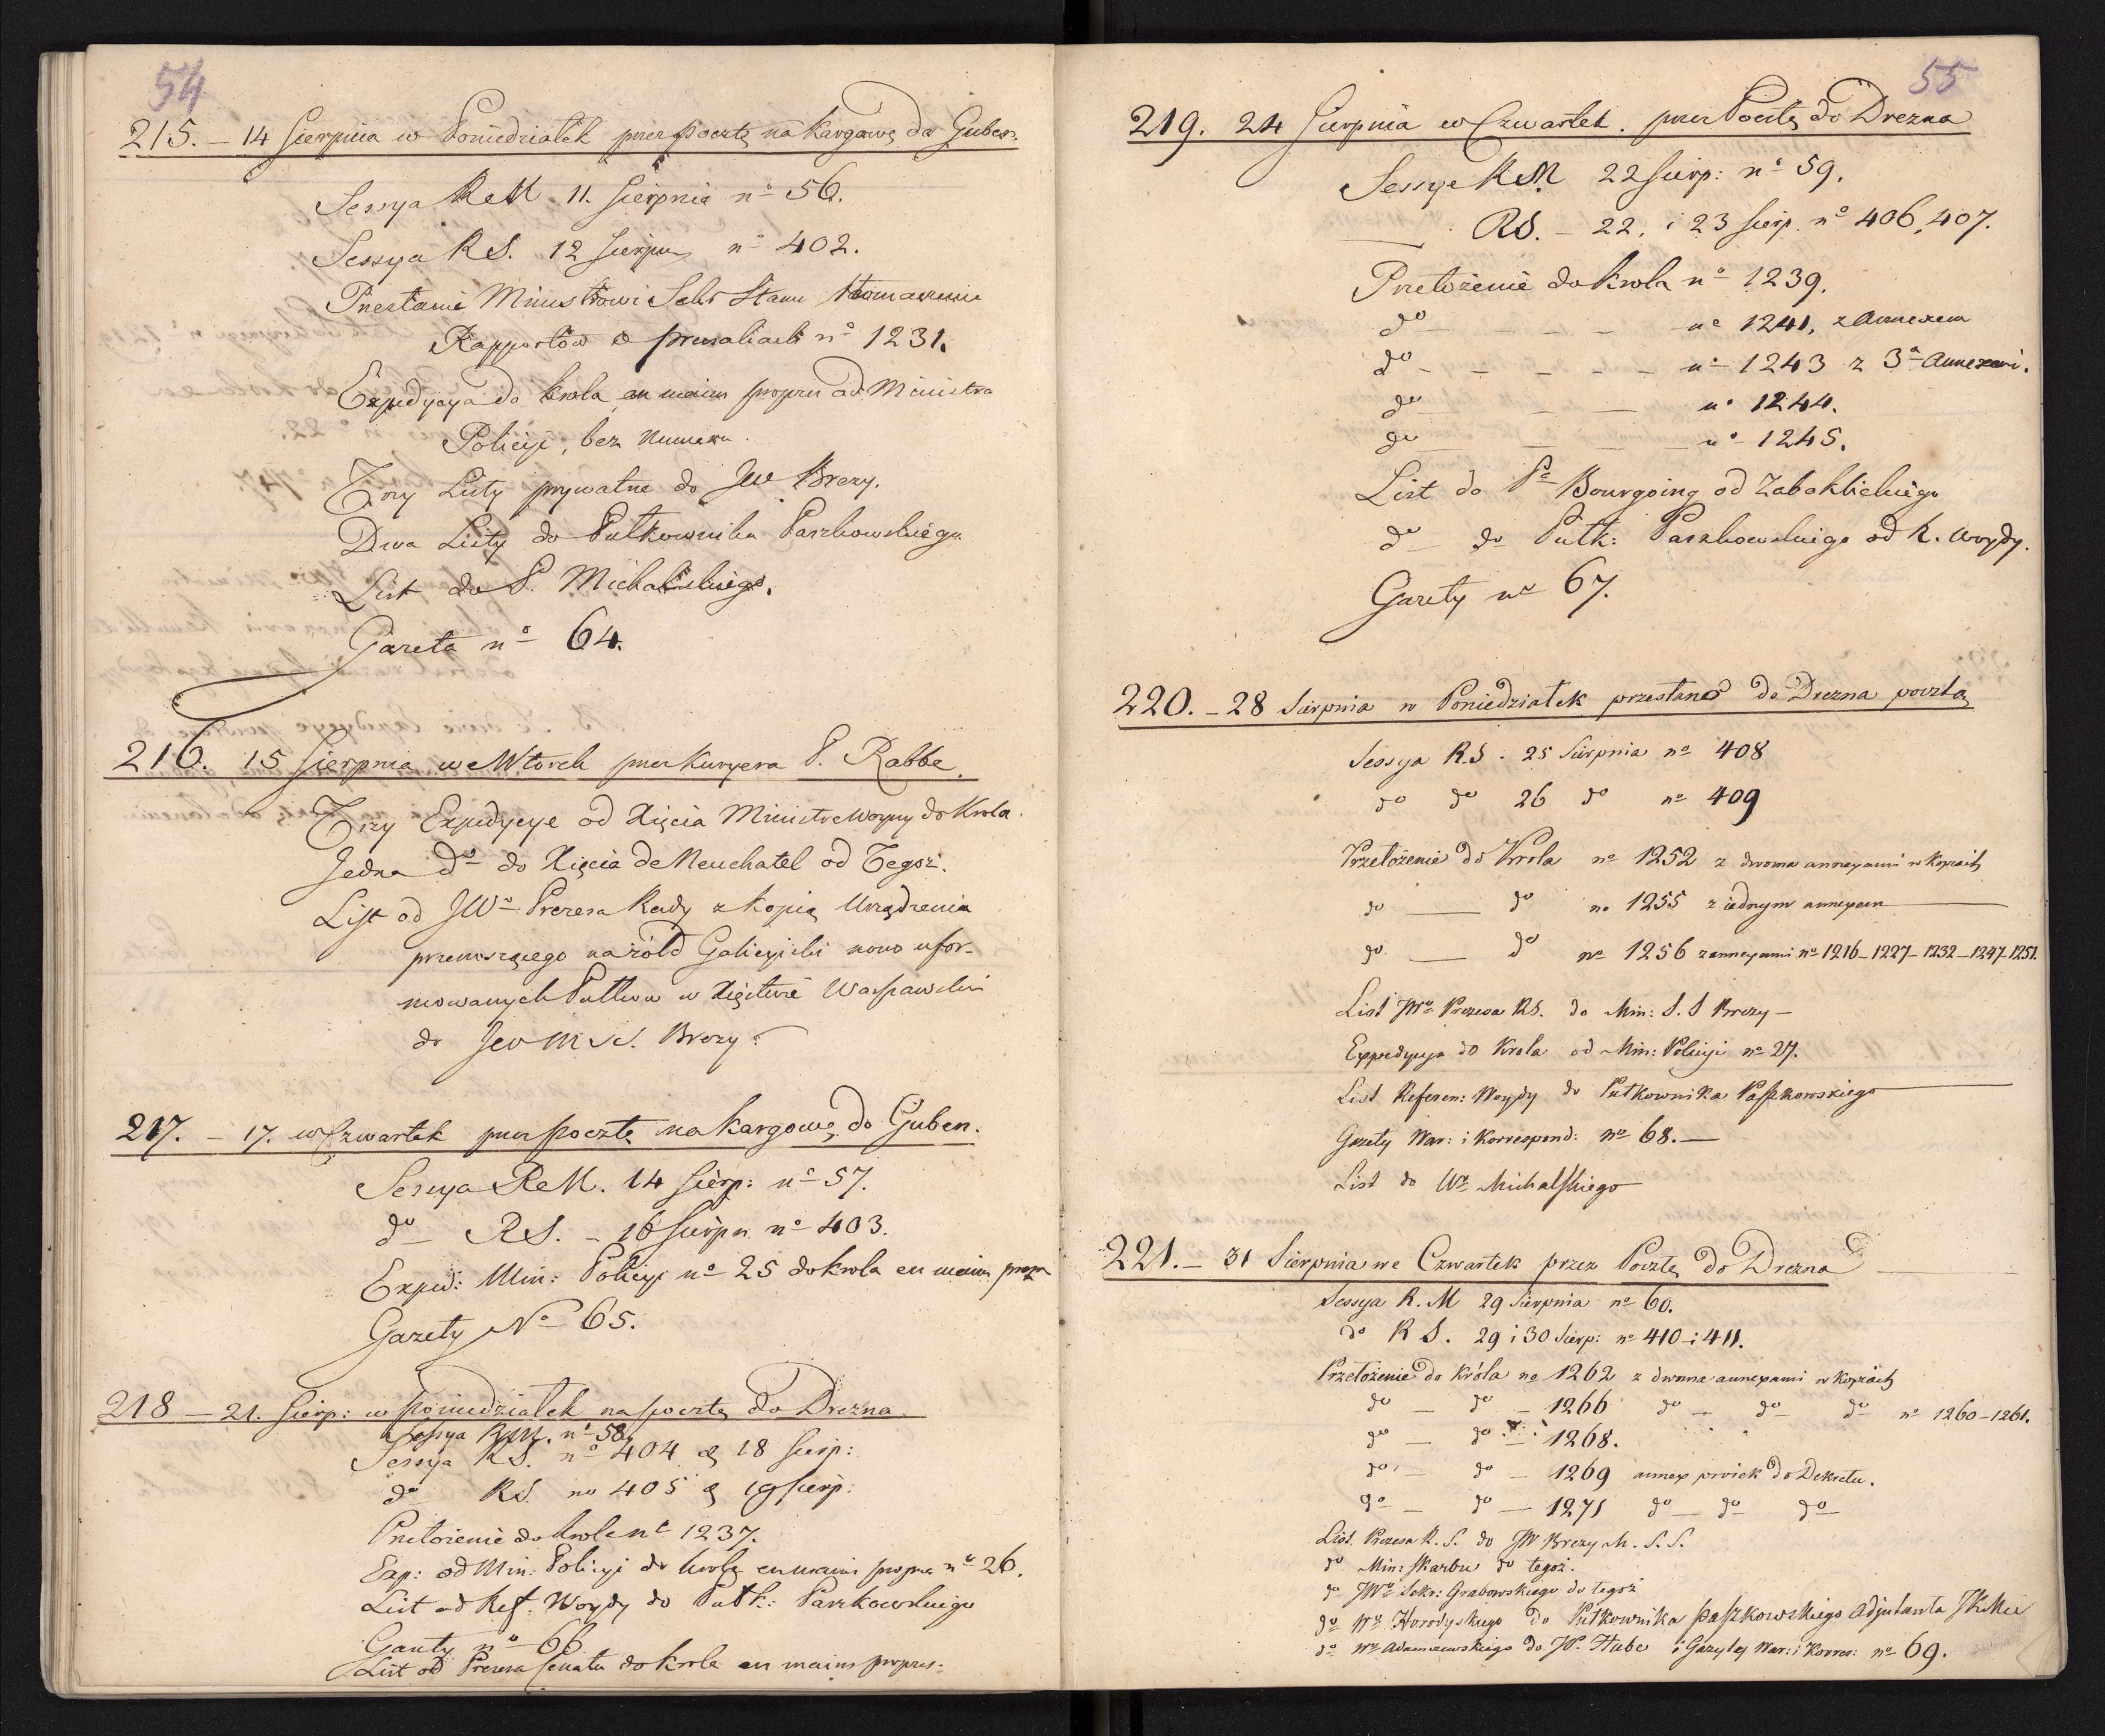 54
215. – 14 Sierpnia w Poniedziałek przez pocztę na Kargawę do Guben.
Sessya R M 11. Sierpnia nº 56.
Sessya R S. 12 Sierpn nº 402.
Przesłanie Ministrowi Sekr Stanu tłomaczenie
Rapportów o nº 1231.
Expedycya do krola en mains propres od Ministra
Policyi, bez Numeru.
Trzy Listy prywatne do JW Brezy.
Dwa Listy do Pułkownika Paszkowskiego
List do P. Michalskiego.
Gazeta nº 64.
216. 15 Sierpnia we Wtorek przez Kuryera P. Rabbe.
Trzy Expedycye od Xięcia Ministra Woyny do Krola.
Jedna dº do Xięcia de Neuchatel od Tegoż.
List od JWº Prezesa Rady z kopią Urządzenia
przenoszącego na żołd Galicyiski nowo ufor-
mowanych Pułków w Xięstwie Warszawskim
do JW M S S. Brezy.
217. – 17. w Czwartek przez pocztę na Kargowę do Guben.
Sessya R M. 14 Sierp: nº 57.
dº R S. – 16 Sierpn nº 403.
Exped: Min: Policyi nº 25 do krola en mains propr
Gazety Nº 65.
218 – 21. Sierp: w poniedziałek na pocztę do Drezna.
Sessya R M. nº 58.
Sessya R S. nº 404 18 Sierp:
dº R S. nº 405 19 Sierp:
Przełożenie do krola nº 1237.
Exp: od Min: Policyi do krola en mains propres nº 26.
List od Ref: Woydy do Pułk: Paszkowskiego
Gazety nº 66
List od Prezesa Senatu do krola en mains propres.
55
219. 24 Sierpnia w Czwartek. przez Pocztę do Drezna
Sessye R M. 22 Sierp: nº 59.
— RS. – 22. i 23 Sierp. nº 406, 407.
Przełożenie do krola nº 1239.
dº – – – nº 1241, z Annexem
dº – – – – nº 1243 z 3ª Annexami.
dº – – nº 1244.
dº – – nº 1245.
List do Pª Bourgoing od Zaboklickiego
dº – dº Pułk: Paszkowskiego od R. Woydy.
Gazety nº 67.
220. – 28 Sierpnia w Poniedziałek przesłano do Drezna pocztą
Sessya R.S. 25 Sierpnia nº 408
dº dº 26 dº nº 409
Przełożenie do Krola nº 1252 z dwoma annexami w kopiach
dº — dº nº 1255 z iednym annexem
dº — dº nº 1256 z annexami nº 1216–1227–1232–1247–1251.
List JWº Prezesa RS. do Min: S. S Brezy –
Expedycya do Krola od Min: Policyi nº 27.
List Referen: Woydy do Pułkownika Paszkowskiego
Gazety War: i Korrespond: nº 68. —
List do Wº Michalskiego
221. – 31 Sierpnia we Czwartek przez Pocztę do Drezna
Sessya R. M 29 Sierpnia nº 60.
dº R S. 29 i 30 Sierp: nº 410 i 411.
Przełożenie do króla nº 1262 z dwoma annexami w kopiach
dº – dº – 1266 dº – dº – dº nº 1260–1261.
dº – dº – 1268.
dº – dº – 1269 annex proiek do Dekretu.
dº – dº – 1271 dº – dº dº –
List Prezesa R. S. do JW Brezy M. S. S.
dº Min: Skarbu do tegoż.
dº JWº Sekr: Grabowskiego do tegoż
dº Wº Horodyskiego do Pułkownika Paszkowskiego Adjutanta JKMci
dº Wº Adamczewskiego do JP. Hube i Gazytey War: i Korres: nº 69.